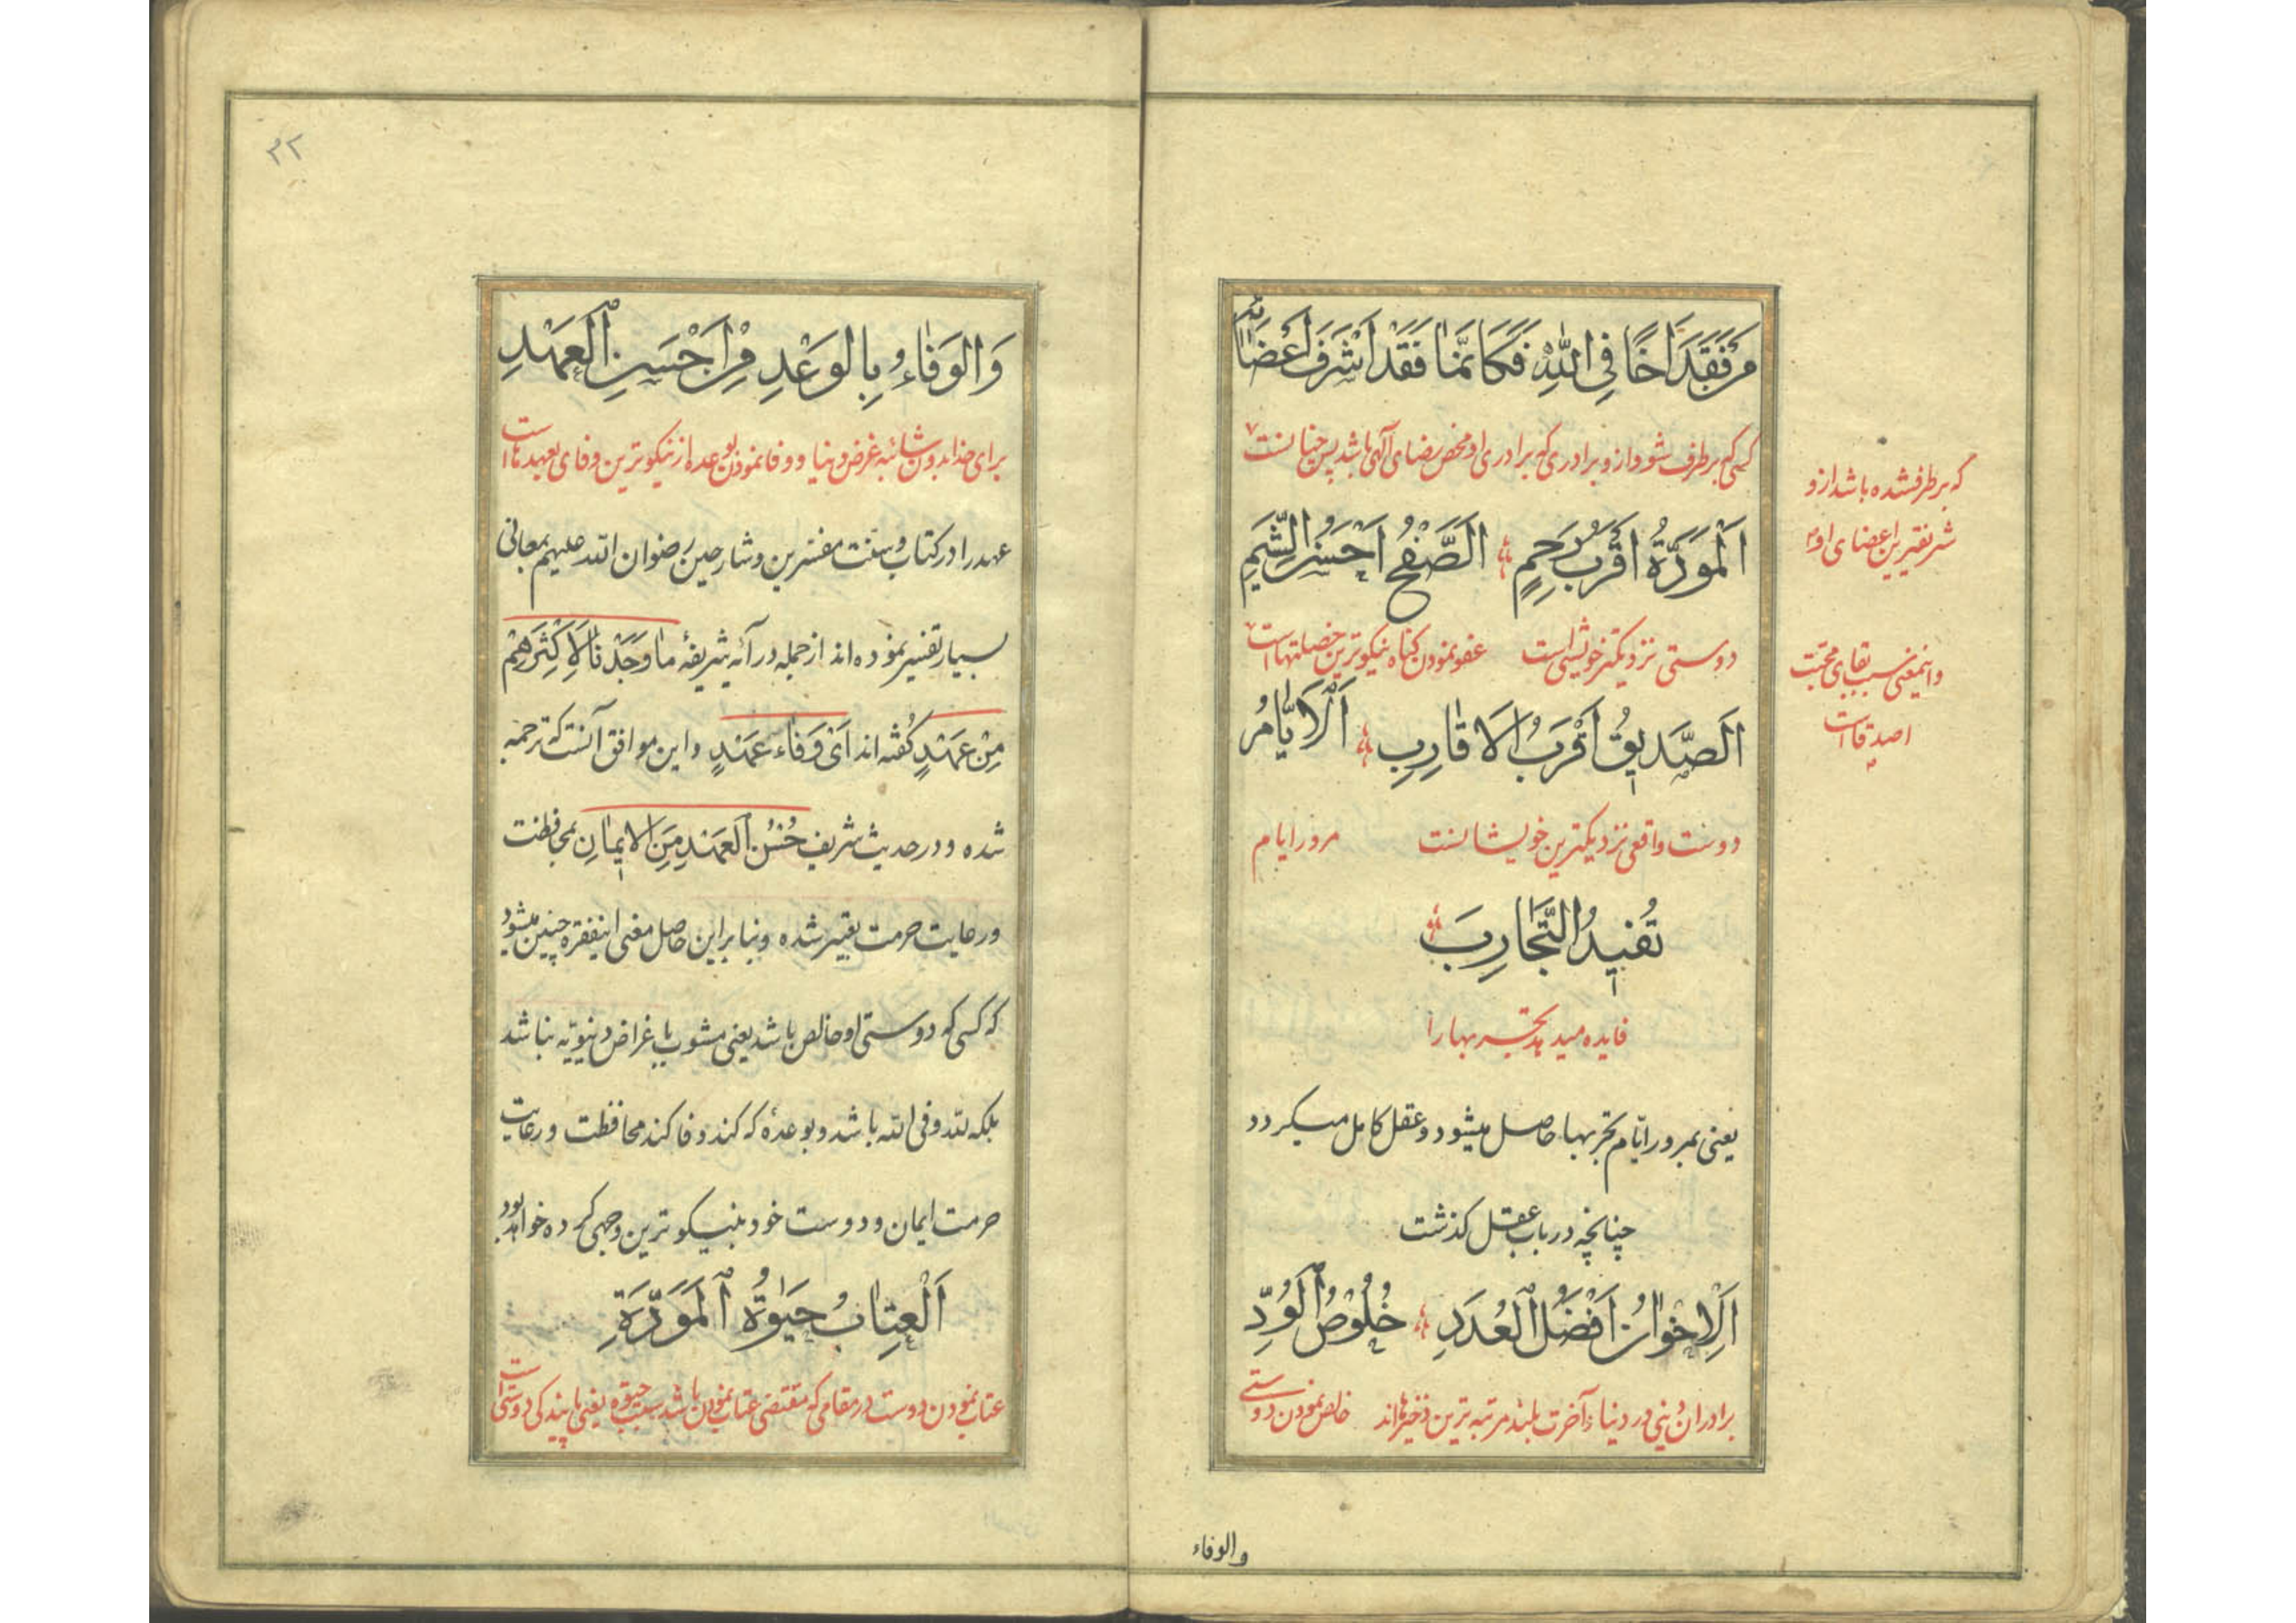 مَنْ فَقَدَ اَخًا فِی اللّٰهِ فَکَاَنَّمٰا فَقَدَ اَشْرَفَ اَعْضٰائِهِ
کسی که برطرف شود ازو برادری که برادری او محض رضای آلهی باشد پس چنانست
که برطرف شده باشد ازو
شریفترین اعضای او
اَلْمَوَدَّةُ اَقْرَبُ رَحِمٍ اَلصَّفْحُ اَحْسَنُ الشِّیَمِ
دوستی نزدیکتر خویشی است عفو نمودن کناه نیکوترین خصلتهاست
واینمعنی سبب بقای محبّت
اصدقاست
اَلصَّدِیقُ اَقْرَبُ الْاَقٰارِبِ اَلْاَیّٰامُ
دوست واقعی نزدیکترین خویشانست مرور ایام
تُفِیدُ التَّجٰارِبَ
فایده میدهد تجربهارا
یعنی بمرور ایّام تجربها حاصل میشود و عقل کامل میکردد
چنانچه در باب عقل کذشت
اَلْاِخْوٰانُ اَفْضَلُ الْعُدَدِ خُلُوصُ الْوُدِّ
برادران دینی در دنیا و آخرت بلند مرتبه ترین ذخیرهااند خالص نمودن دوستی
والوفاء
۳۲
وَالْوَفٰاءُ بِالْوَعْدِ مِنْ اَحْسَنِ الْعَهْدِ
برای خدا بدون شائبه غرض دنیا و وفا نمودن بوعده از نیکوترین وفای بعهدهاست
عهد را در کتاب و سنت مفسّرین و شارحین رضوان الله علیهم بمعانی
بسیار تفسیر نموده اند از جمله در آیه شریفهٔ مٰا وَجَدْنٰا لِاَکْثَرِهِمْ
مِنْ عَهْدٍ کفته اند اَیْ وَفٰاءِ عَهْدٍ واین موافق آنست که ترجمه
شده و در حدیث شریف حُسْنُ الْعَهْدِ مِنَ الْاٖیمٰانِ بمحافظت
ورعایت حرمت تعبیر شده و بنا براین حاصل معنی اینفقره چنین میشود
که کسی که دوستی او خالص باشد یعنی مشوب باغراض دنیویّه نباشد
بلکه لله و فی الله باشد و بوعدهٔ که کند وفا کند محافظت ورعایت
حرمت ایمان و دوست خود بنیکوترین وجهی کرده خواهد بود
اَلْعِتٰابُ حَیٰوةُ الْمَوَدَّةِ
عتاب نمودن دوست در مقامی که مقتضی عتاب نمودن باشد سبب حیوة یعنی پایندکی دوستی است